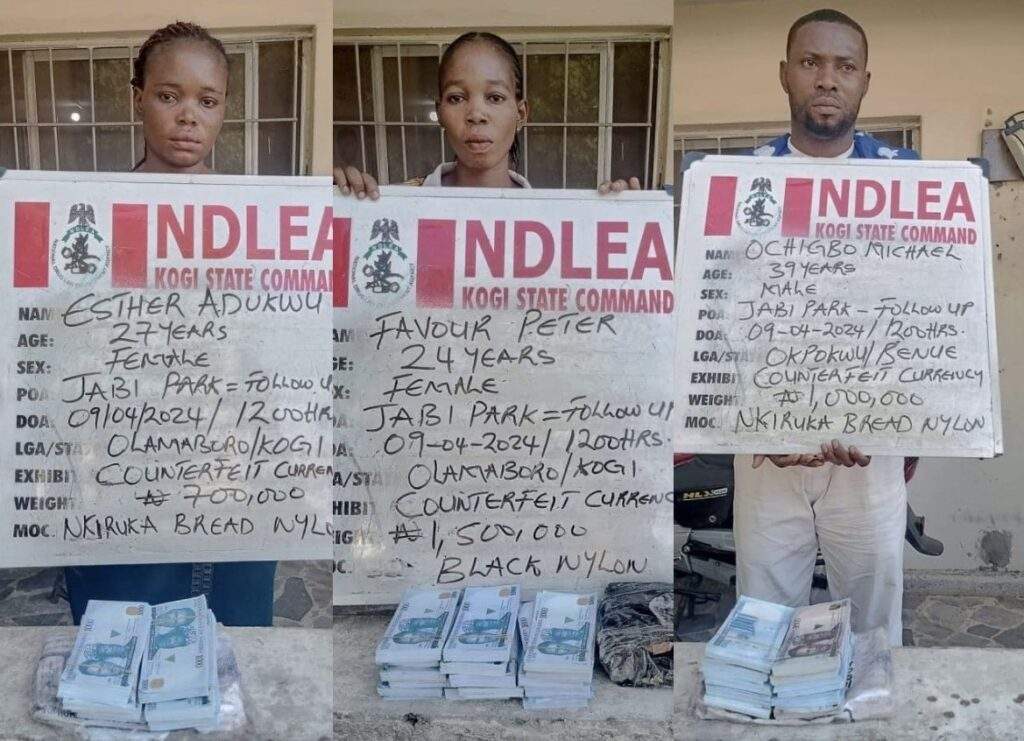 NDLEA
KOGI STATE COMMAND
NAM ESTHER ADUKWU
AGE: 27 YEARS
SEX: FEMALE
POA JABI PARK = FOLLOW UP
DOA: 09/04/2024/1200HRS
LGA/STA OLAMABORO/KOGI
EXHIBIT COUNTERFEIT CURREN
WEIGHT: ₦ 700,000
MOC. NKIRUKA BREAD NYLO
NDLEA
KOGI STATE COMMAND
AM FAVOUR PETER
GE: 24 YEARS
EX: FEMALE
JABI PARK = FOLLOW UP
09-04-2024/1200HRS.
OLAMABORO/KOGI
HIBI COUNTERFEIT CURRENC
₦1,500,000
BLACK NYLON
NDLEA
KOGI STATE COMMAND
NAM OCHIGBO MICHAEL
AGE: 39 YEARS
SEX: MALE
POA: JABI PARK - FOLLOW UP
DOA: 09-04-2024/1200HRS.
LGA/STA OKPOKWU/BENUE
EXHIBI COUNTERFEIT CURRENCY
WEIGHT: ₦1,000,000
MOC. NKIRUKA BREAD NYLON